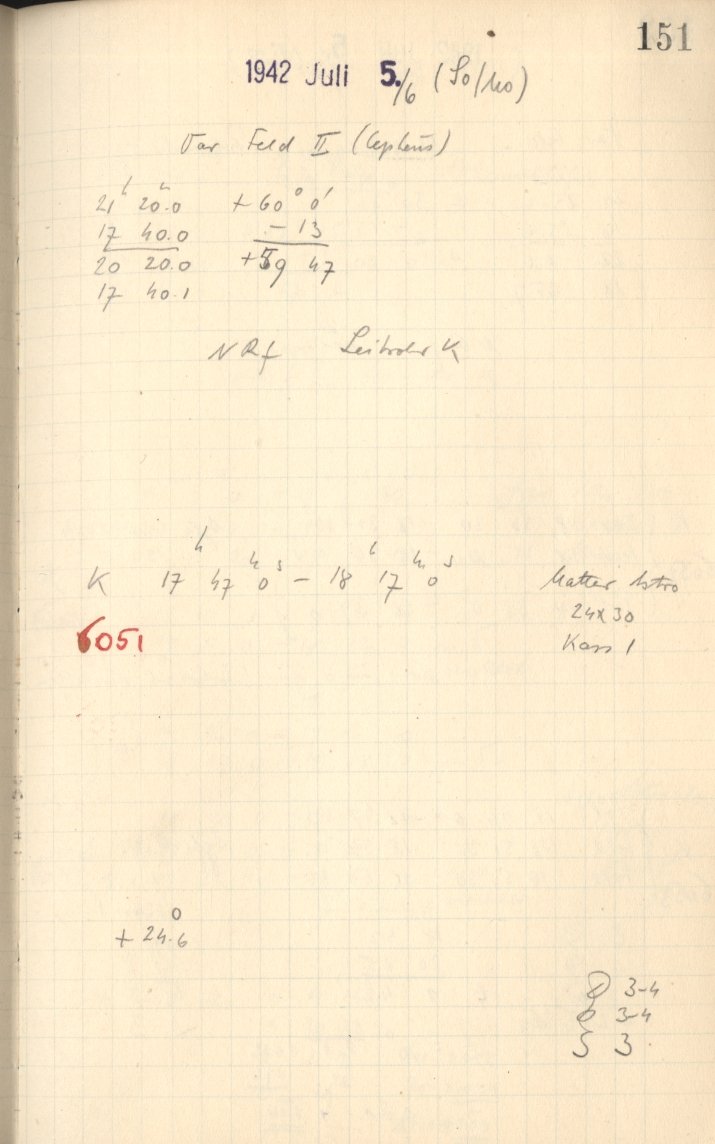 151
1942 Juli 5./6 (So/Mo)
Var Feld II (Cepheus)
21h 20m.0 +60° 0'
17 40.0 - 13
20 20.0 +59 47
17 40.1
NRf Leitrohr K
K 17h 47m 0s - 18h 17m 0s Matter Astro
6051 24x30
Kass 1
+ 24°.6
3-4
3-4
S 3